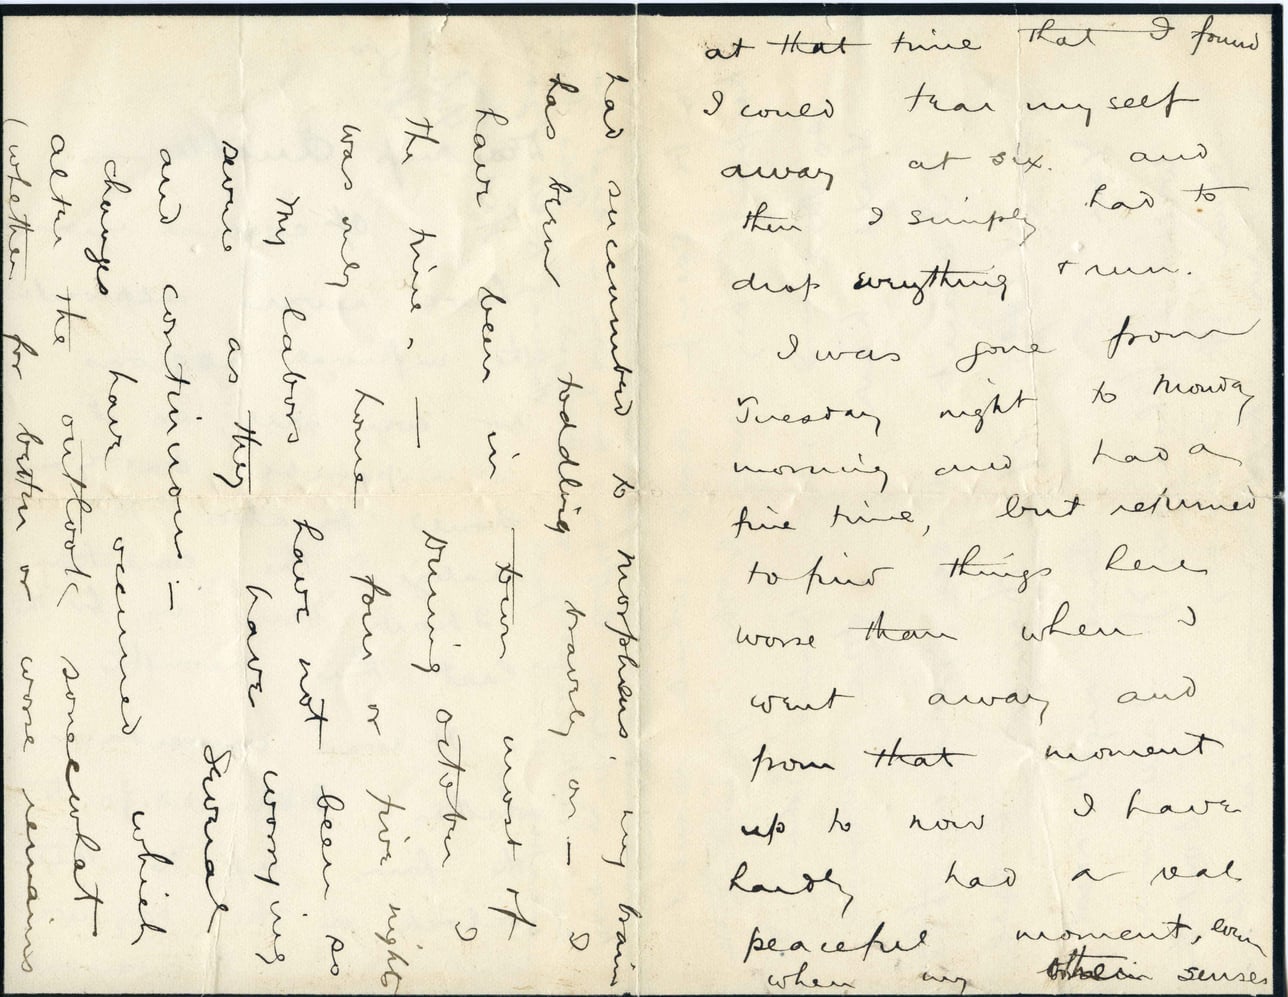 at that time that I found
I could tear myself
away at six. and
then I simply had to
drop everything & run.
I was gone from
Tuesday night to Monday
morning and had a
fine time, but returned
to find things here
worse than when I
went away and
from that moment
up to now I have
hardly had a real
peaceful moment, even
when my senses
had succumbed to Morpheus, my brain
has been toddling bravely on — I
have been in town most of
the time. — During October I
was only home four or five nights
My labors have not been so
severe as they have worrying
and continuous — Several
changes have occurred which
alter the outlook somewhat
(whether for better or worse remains